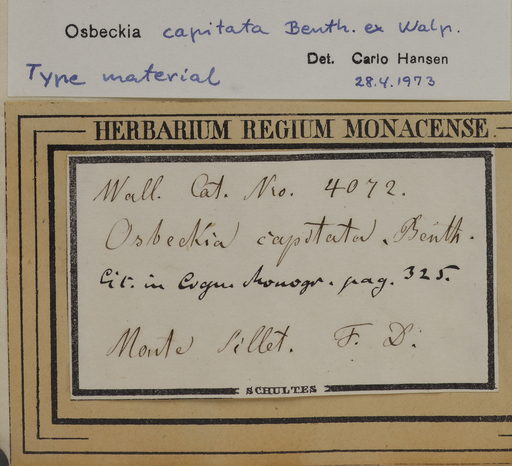 Osbeckia capitata Benth. ex Walp.
Det. Carlo Hansen
28.4.1973
Type material
HERBARIUM REGIUM MONACENSE.
Wall. Cat. Nro. 4072.
Osbeckia capitata. Benth.
Cit. in Cogn. Monogr. pag. 325.
Monte Sillet. F. D.
SCHULTES